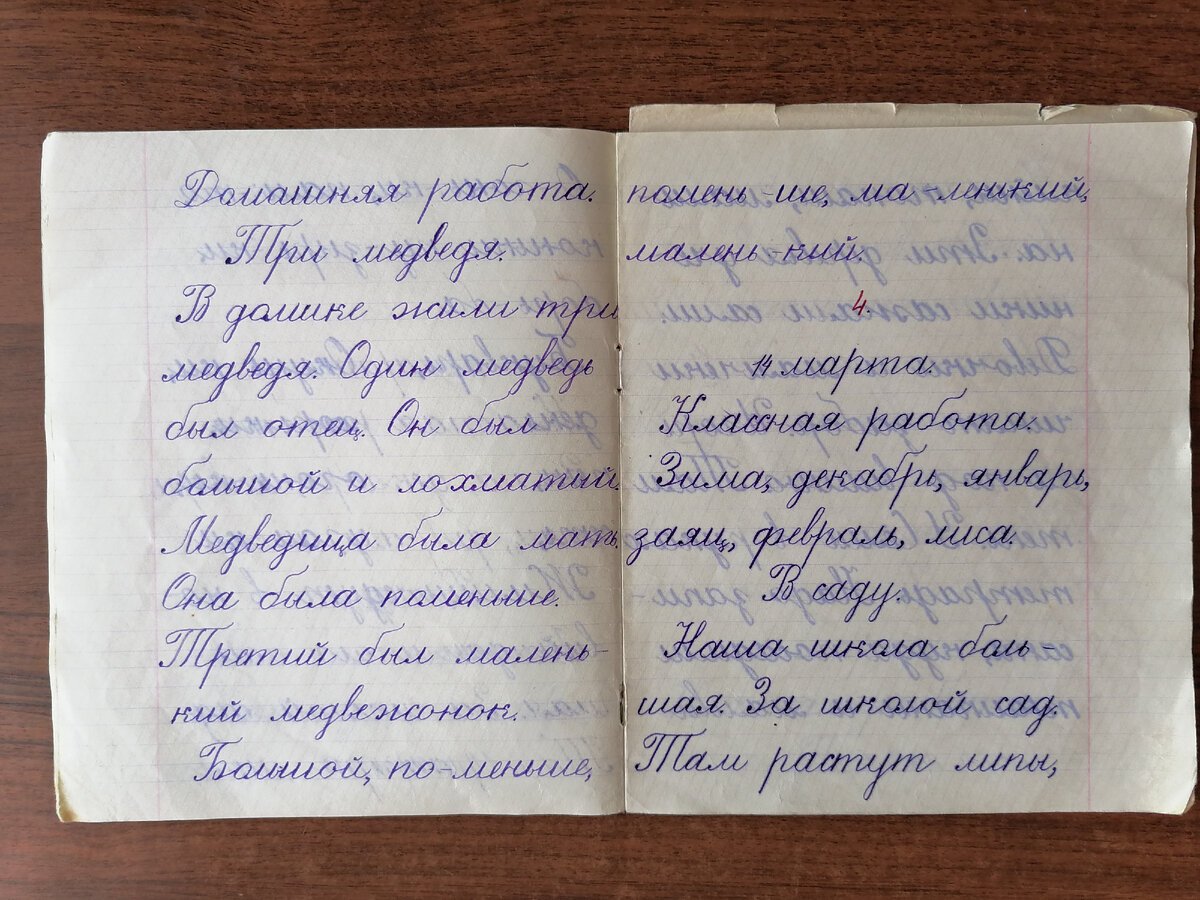 Домашняя работа.
Три медведя.
В домике жили три
медведя. Один медведь
был отец. Он был
большой и лохматый.
Медведица была мать.
Она была поменьше.
Третий был малень-
кий медвежонок.
Большой, по-меньше,
помень-ше, ма-ленький,
малень-кий.
4.
14 марта.
Классная работа.
Зима, декабрь, январь,
заяц, февраль, лиса.
В саду.
Наша школа боль-
шая. За школой сад.
Там растут липы,